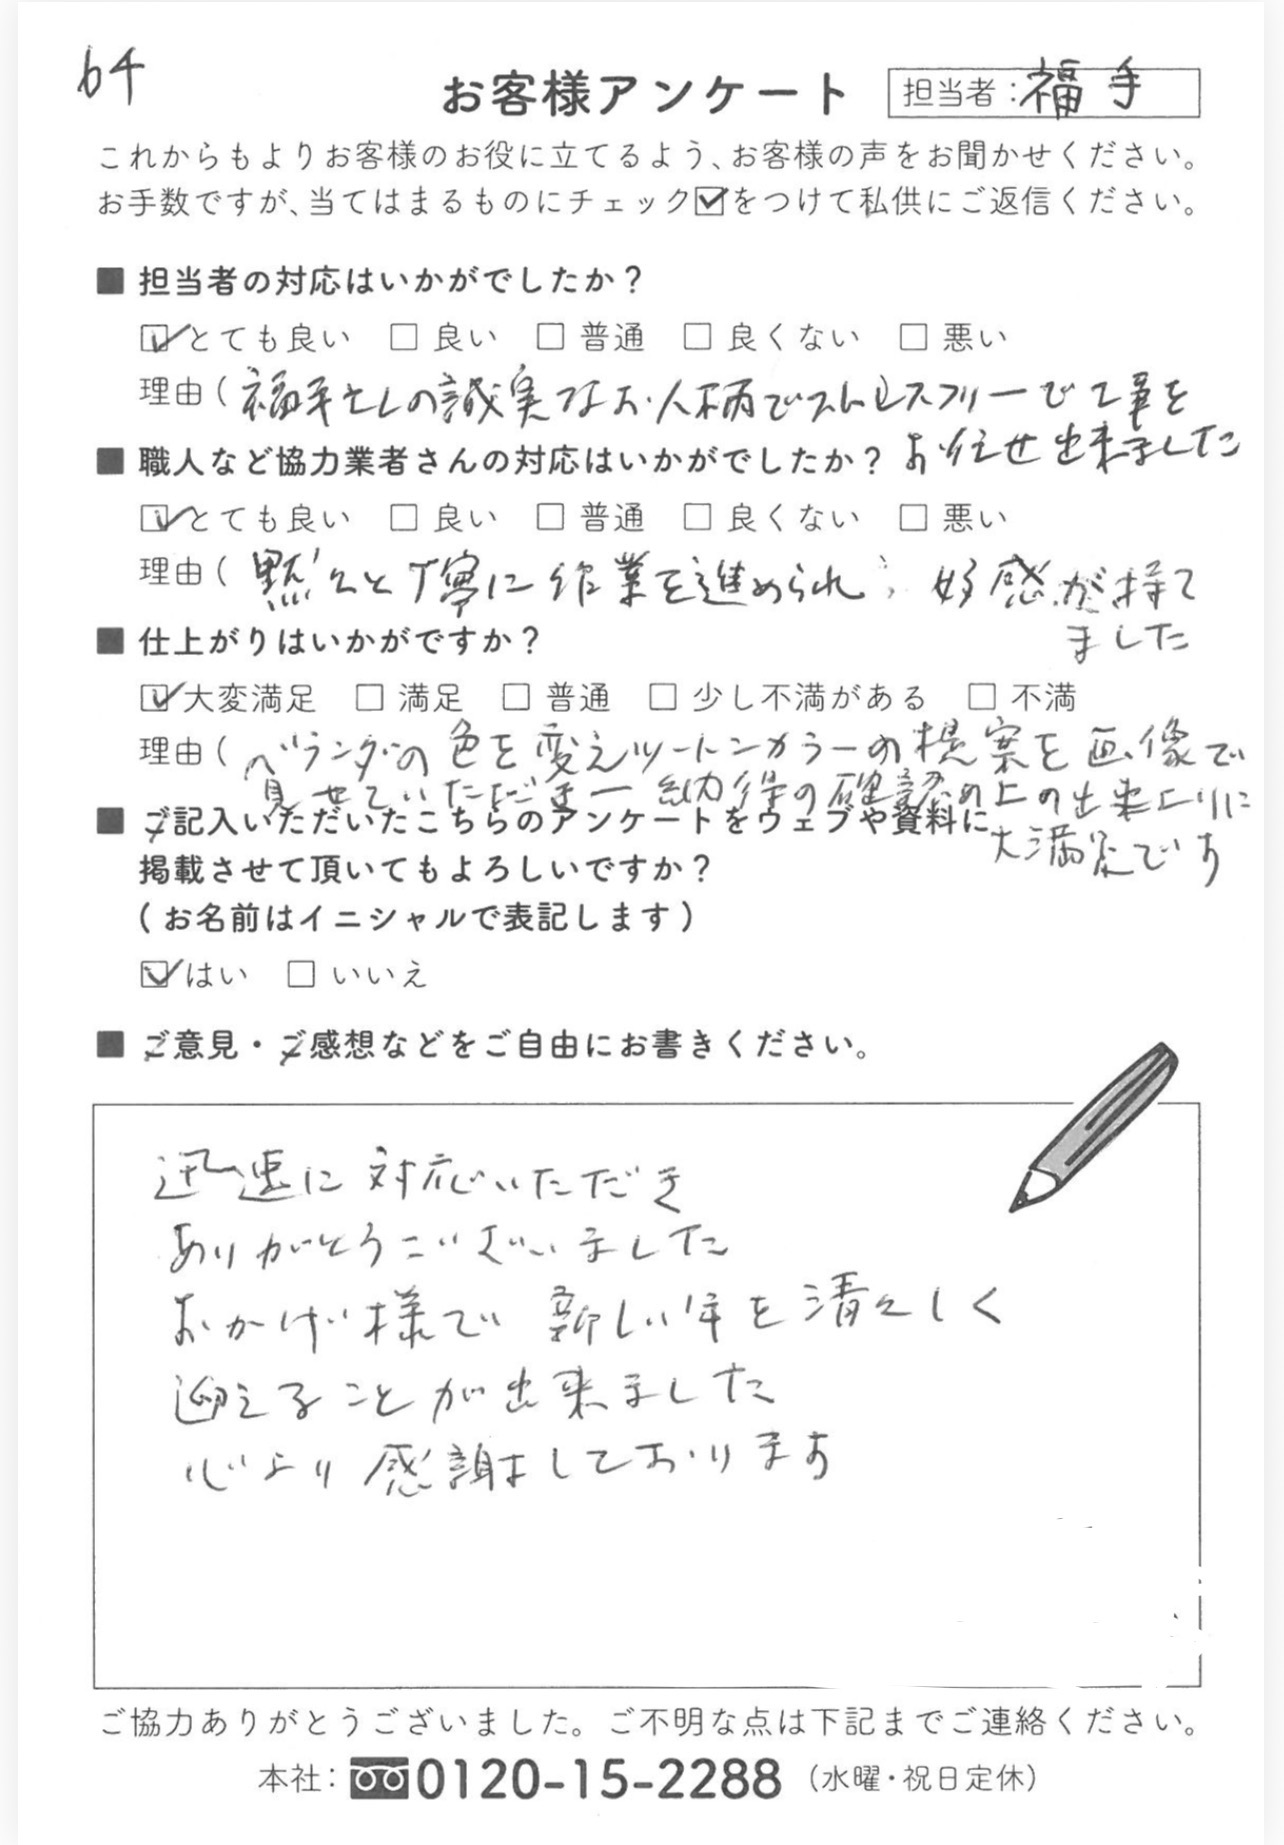 お客様アンケート
担当者：福手
これからもよりお客様のお役に立てるよう、お客様の声をお聞かせください。
お手数ですが、当てはまるものにチェック☑をつけて私供にご返信ください。
■ 担当者の対応はいかがでしたか？
☑とても良い □ 良い □ 普通 □ 良くない □ 悪い
理由（ 福手さんの誠実なお人柄でストレスフリーで工事を
お任せ出来ました
■ 職人など協力業者さんの対応はいかがでしたか？
☑とても良い □ 良い □ 普通 □ 良くない □ 悪い
理由（ 黙々と丁寧に作業を進められ、好感が持て
ました
■ 仕上がりはいかがですか？
☑大変満足 □ 満足 □ 普通 □ 少し不満がある □ 不満
理由（ ベランダの色を変えツートンカラーの提案を画像で
見せていただき 納得の確認の上の出来上りに
大満足です
■ ご記入いただいたこちらのアンケートをウェブや資料に
掲載させて頂いてもよろしいですか？
（お名前はイニシャルで表記します）
☑はい □ いいえ
■ ご意見・ご感想などをご自由にお書きください。
迅速に対応いただき
ありがとうございました
おかげ様で 新しい年を清々しく
迎えることが出来ました
心より感謝しております
ご協力ありがとうございました。ご不明な点は下記までご連絡ください。
本社： 0120-15-2288 （水曜・祝日定休）